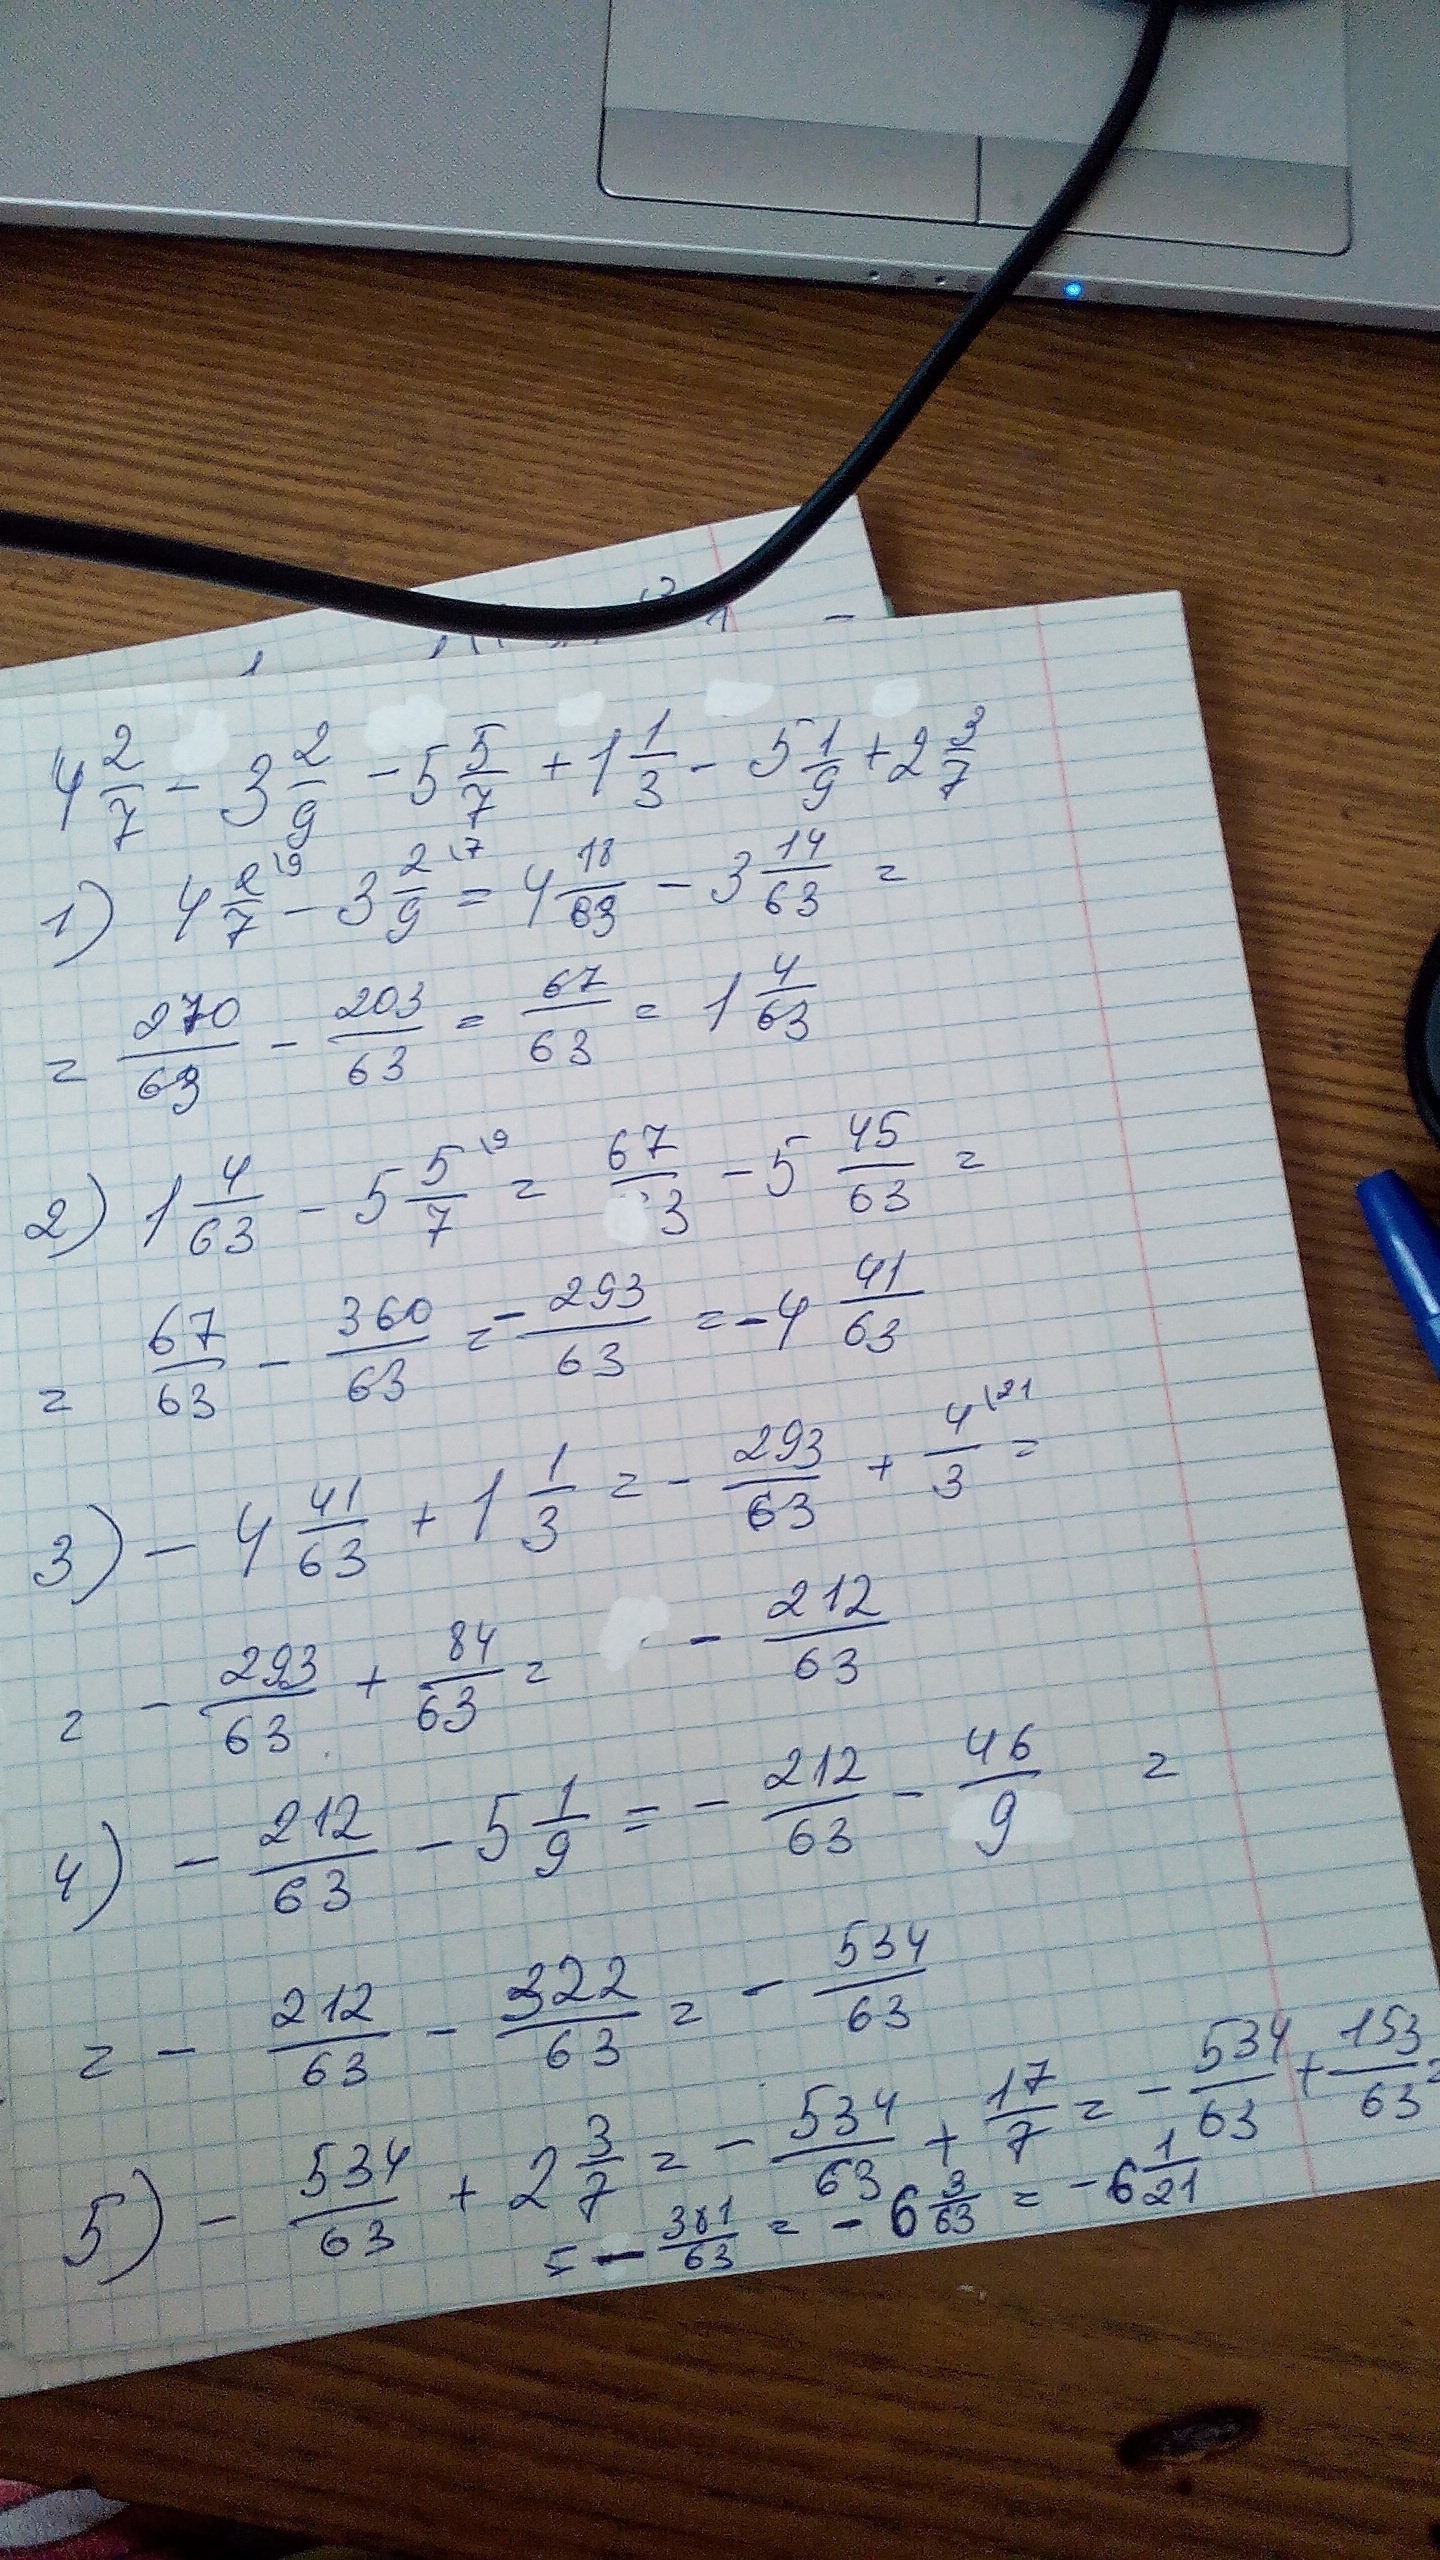 4 2/7 - 3 2/9 - 5 5/7 + 1 1/3 - 5 1/9 + 2 3/7
1) 4 2/7 \9 - 3 2/9 \7 = 4 18/63 - 3 14/63 =
= 270/63 - 203/63 = 67/63 = 1 4/63
2) 1 4/63 - 5 5/7 \9 = 67/63 - 5 45/63 =
= 67/63 - 360/63 = - 293/63 = - 4 41/63
3) - 4 41/63 + 1 1/3 = - 293/63 + 4/3 \21 =
= - 293/63 + 84/63 = - 212/63
4) - 212/63 - 5 1/9 = - 212/63 - 46/9 =
= - 212/63 - 322/63 = - 534/63
5) - 534/63 + 2 3/7 = - 534/63 + 17/7 = - 534/63 + 153/63 =
= - 381/63 = - 6 3/63 = - 6 1/21